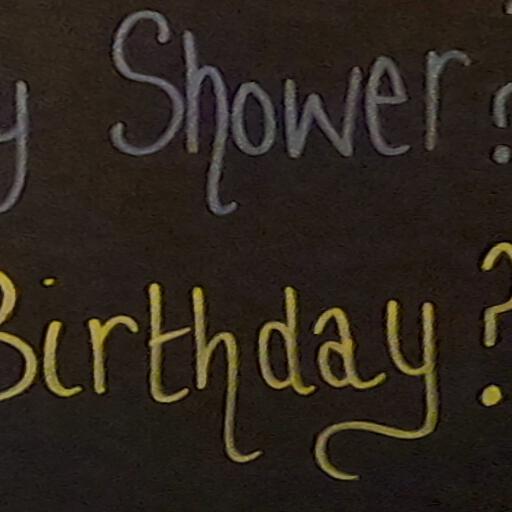 y Shower?
Birthday?